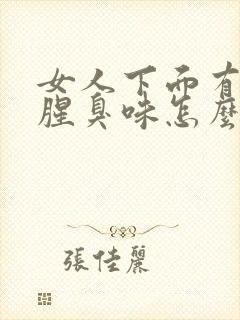 女人下面有
腥臭味怎麼
張佳麗